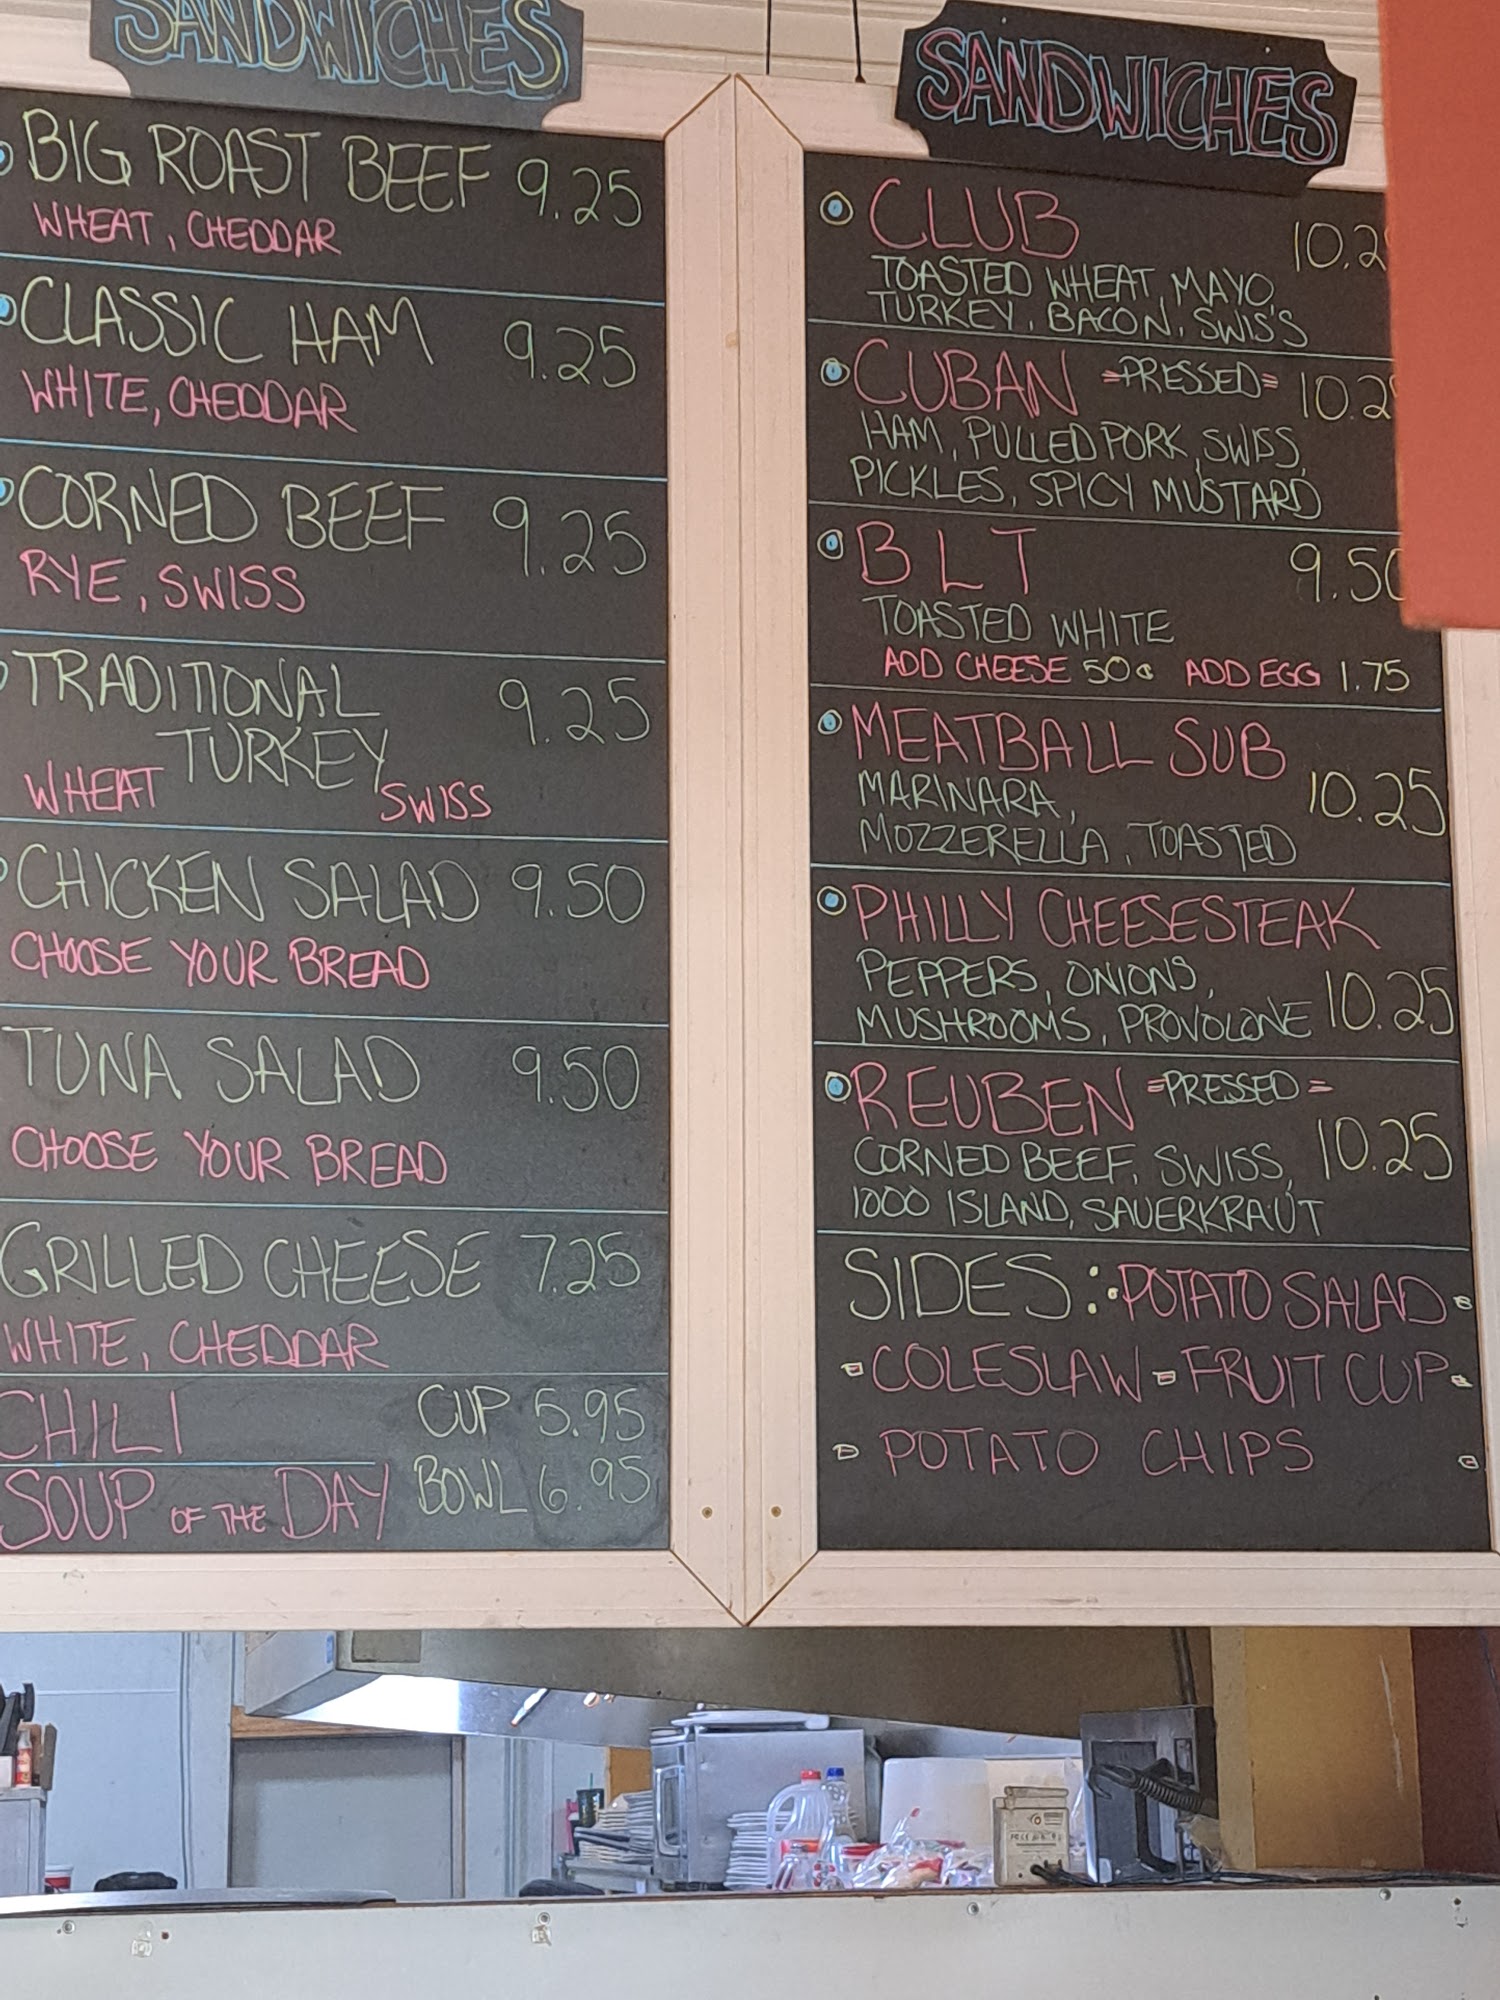 SANDWICHES
BIG ROAST BEEF 9.25
WHEAT, CHEDDAR
CLASSIC HAM 9.25
WHITE, CHEDDAR
CORNED BEEF 9.25
RYE, SWISS
TRADITIONAL 9.25
TURKEY
WHEAT SWISS
CHICKEN SALAD 9.50
CHOOSE YOUR BREAD
TUNA SALAD 9.50
CHOOSE YOUR BREAD
GRILLED CHEESE 7.25
WHITE, CHEDDAR
CHILI CUP 5.95
SOUP OF THE DAY BOWL 6.95
SANDWICHES
CLUB 10.2
TOASTED WHEAT, MAYO,
TURKEY, BACON, SWISS
CUBAN =PRESSED= 10.2
HAM, PULLED PORK, SWISS,
PICKLES, SPICY MUSTARD
BLT 9.50
TOASTED WHITE
ADD CHEESE 50¢ ADD EGG 1.75
MEATBALL SUB
MARINARA, 10.25
MOZZERELLA, TOASTED
PHILLY CHEESESTEAK
PEPPERS, ONIONS,
MUSHROOMS, PROVOLONE 10.25
REUBEN =PRESSED=
CORNED BEEF, SWISS, 10.25
1000 ISLAND, SAUERKRAUT
SIDES: POTATO SALAD
COLESLAW - FRUIT CUP
POTATO CHIPS